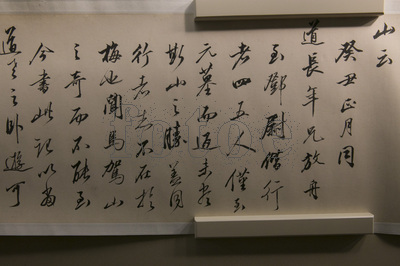 山云
癸丑正月同
道長年兄放舟
至鄧尉偕行
者四五人僅至
元墓而返未盡
斯山之勝盖同
行者志不在於
梅也聞馬駕山
之奇而不能至
今書此記以為
道長之卧遊可